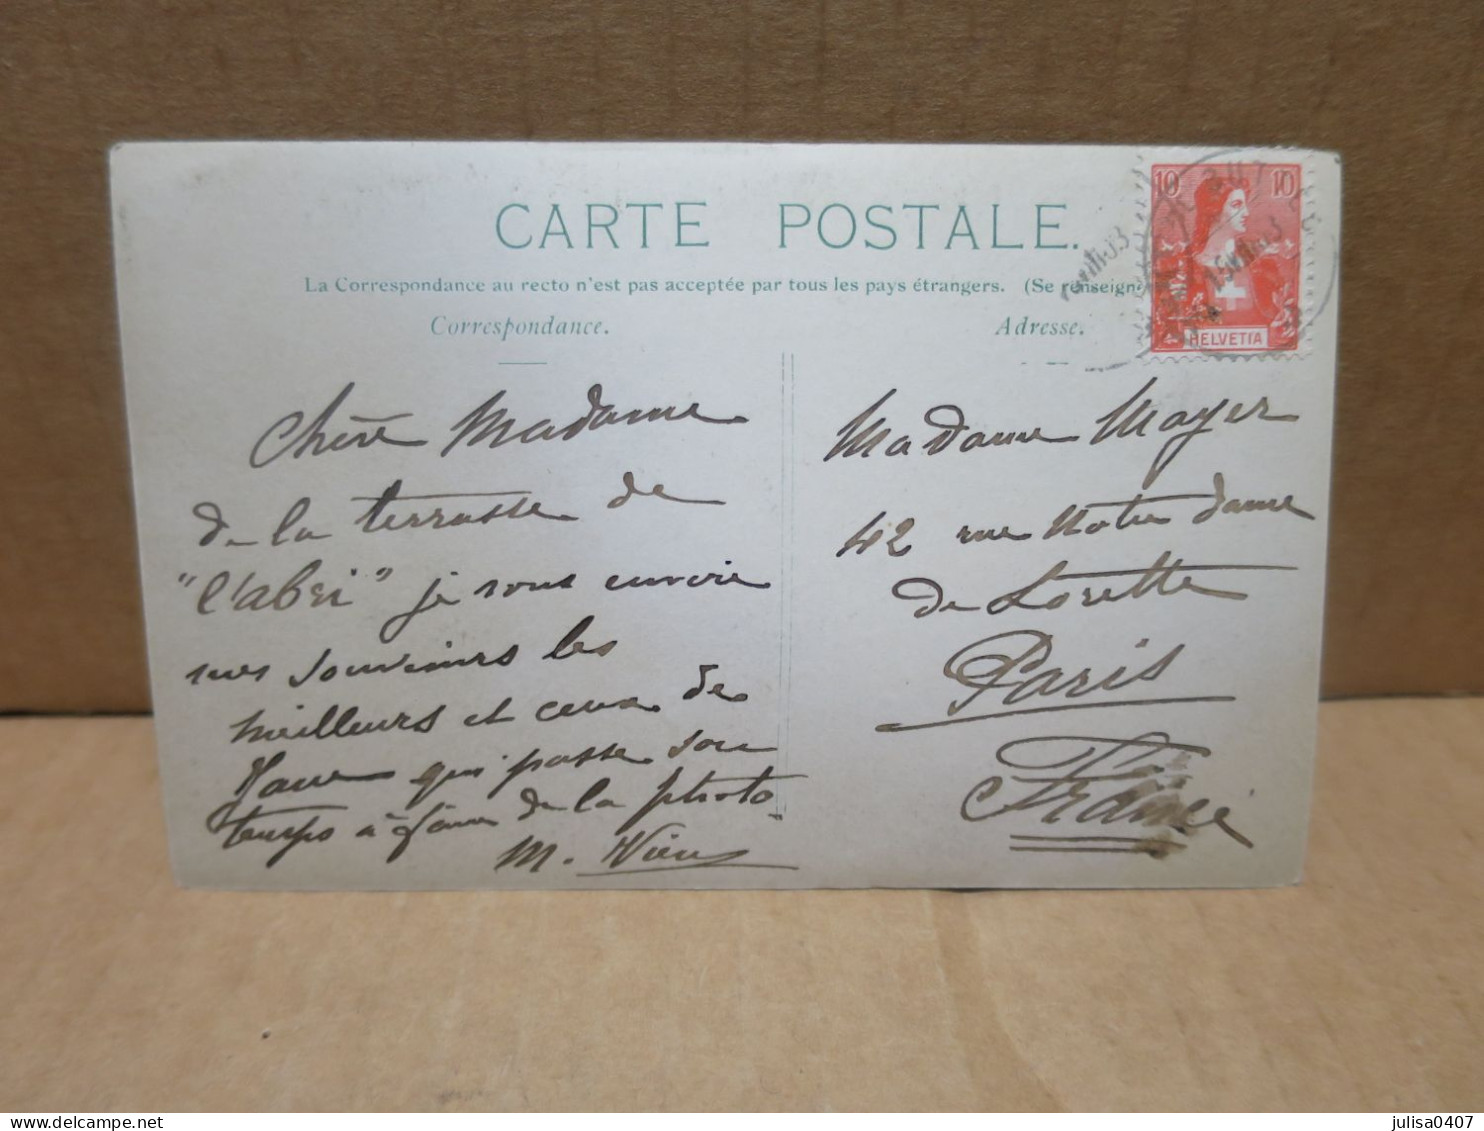 CARTE POSTALE.
La Correspondance au recto n'est pas acceptée par tous les pays étrangers. (Se renseign
Correspondance.
Adresse.
10 10
HELVETIA
Chère Madame
de la terrasse de
"l'abri" je vous envoie
mes souvenirs les
meilleurs et ceux de
qui passe son
temps à faire de la photo
M.
Madame Mayer
42 rue Notre Dame
de Lorette
Paris
France
julisa0407